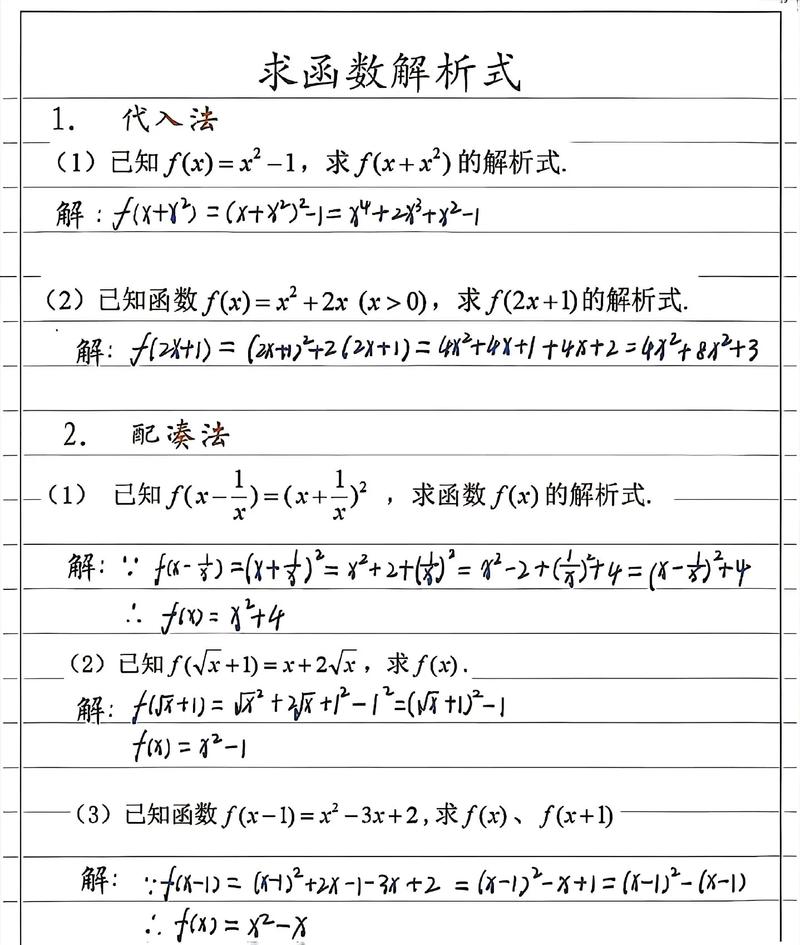 求函数解析式
1. 代入法
（1）已知 f(x)=x²−1，求 f(x+x²) 的解析式.
解：f(x+x²)=(x+x²)²-1=x⁴+2x³+x²-1
（2）已知函数 f(x)=x²+2x (x>0)，求 f(2x+1)的解析式.
解：f(2x+1)=(2x+1)²+2(2x+1)=4x²+4x+1+4x+2=4x²+8x²+3
2. 配凑法
（1） 已知 f(x−1/x)=(x+1/x)²，求函数 f(x) 的解析式.
解：∵ f(x-1/x)=(x+1/x)²=x²+2+(1/x)²=x²-2+(1/x)²+4=(x-1/x)²+4
∴ f(x)=x²+4
（2）已知 f(√x+1)=x+2√x，求 f(x).
解：f(√x+1)=√x²+2√x+1²-1²=(√x+1)²-1
f(x)=x²-1
（3）已知函数 f(x−1)=x²−3x+2,求 f(x)、f(x+1)
解：∵f(x-1)=(x-1)²+2x-1-3x+2=(x-1)²-x+1=(x-1)²-(x-1)
∴ f(x)=x²-x